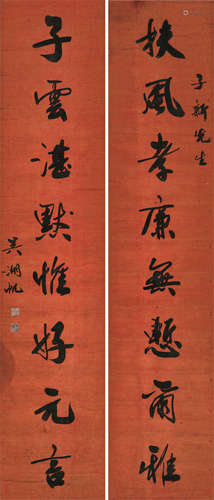 扶風孝廉無慙爾雅
子新先生
子雲湛默惟好元言
吴湖帆